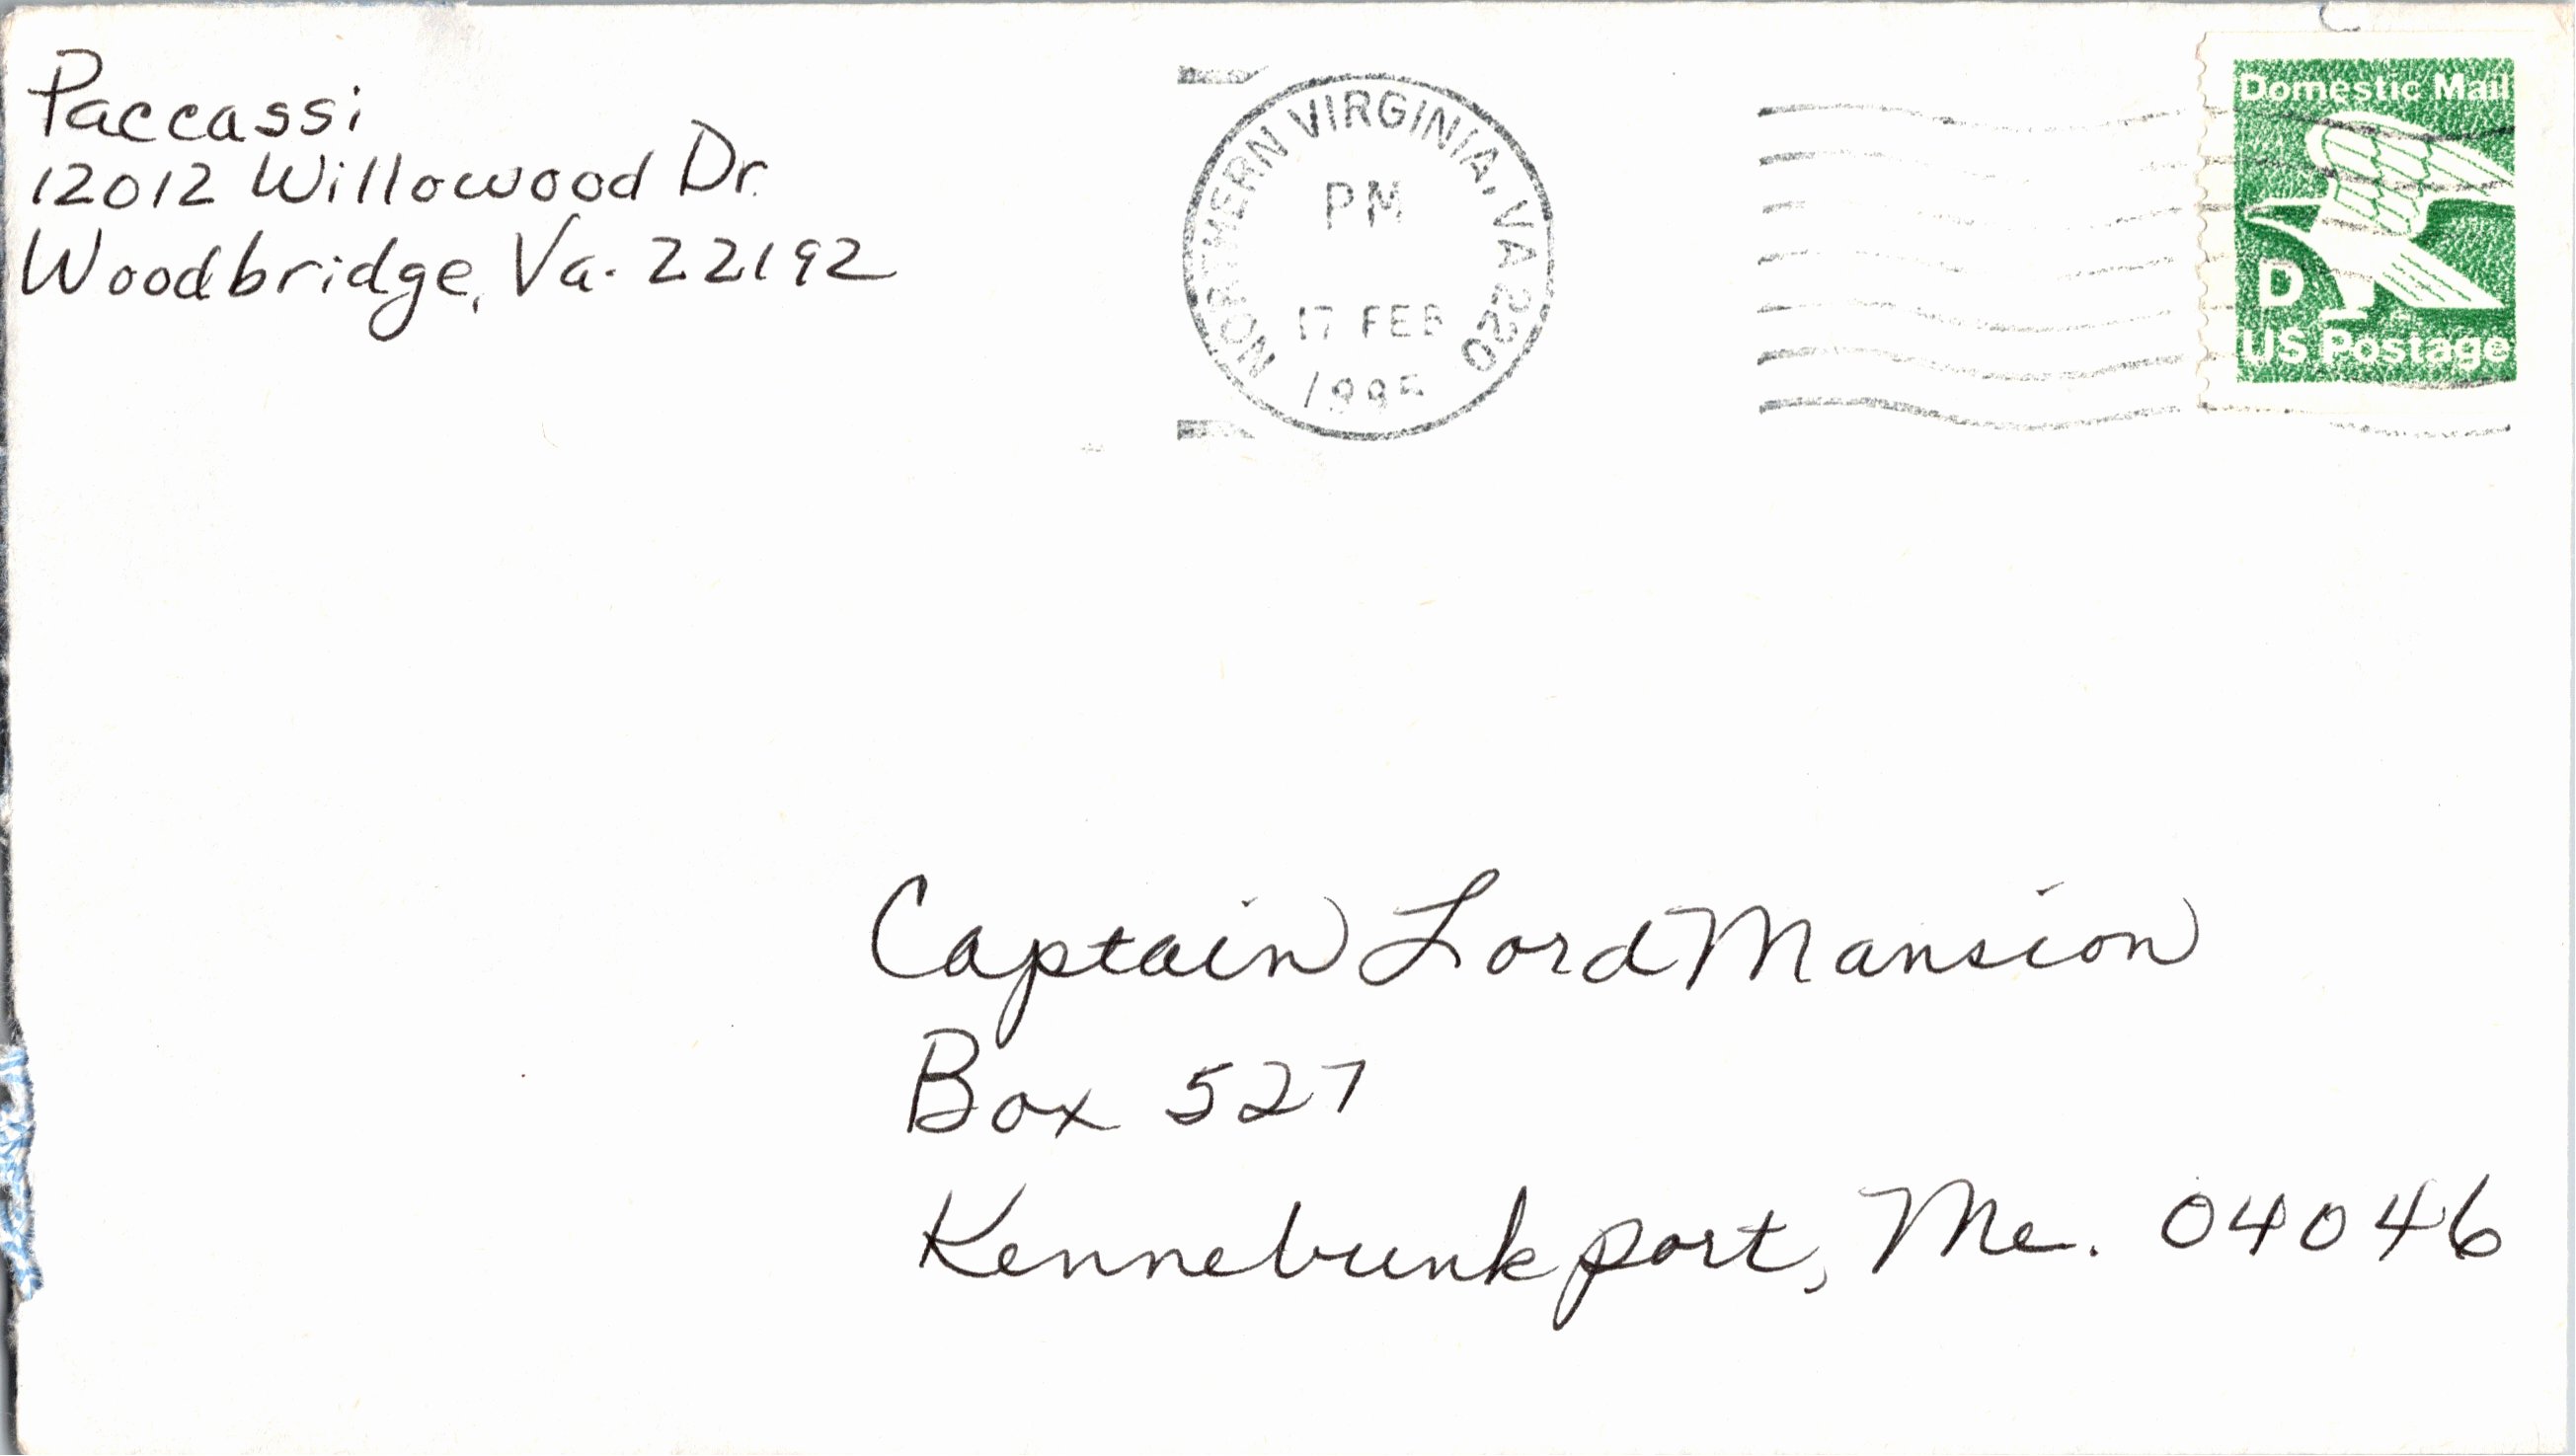 Paccassi
12012 Willowood Dr.
Woodbridge, Va. 22192
NORTHERN VIRGINIA, VA 220
PM
17 FEB
1995
Domestic Mail
D
US Postage
Captain Lord Mansion
Box 527
Kennebunkport, Me. 04046